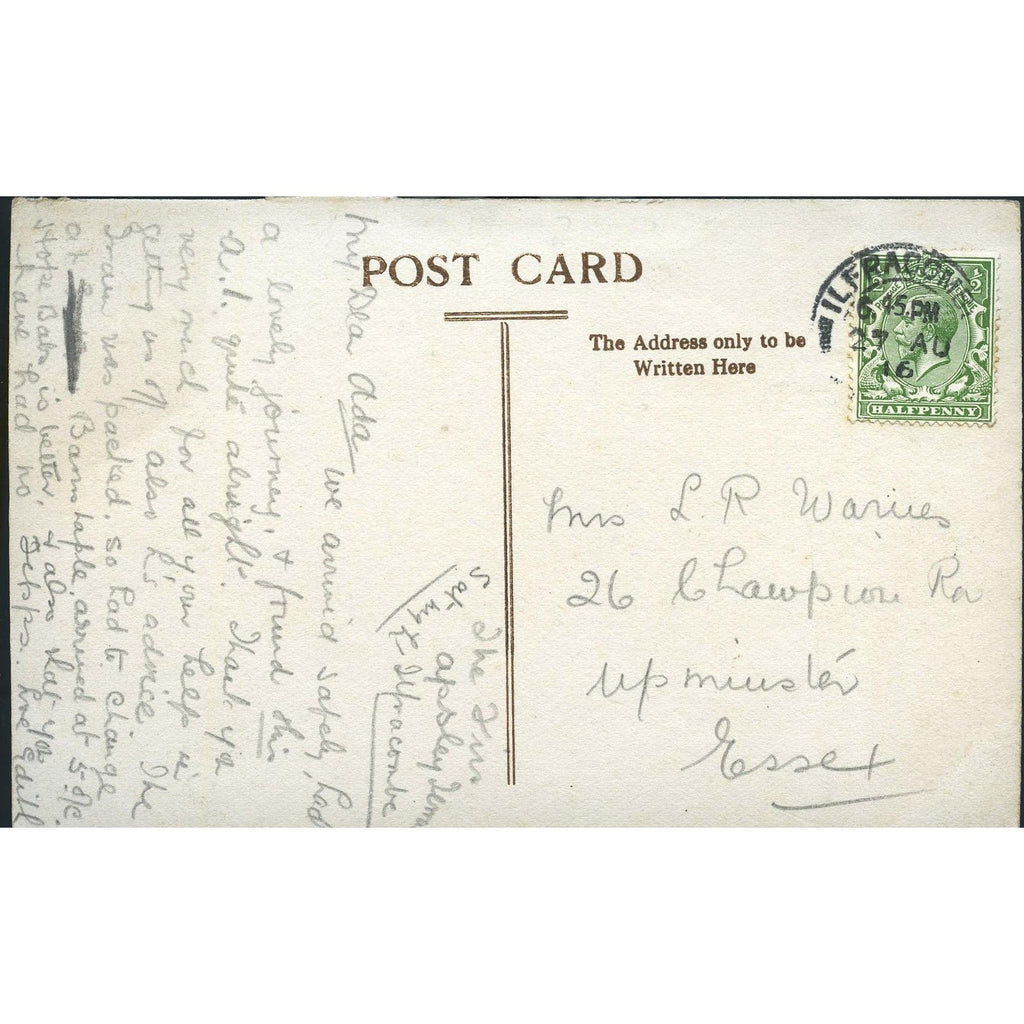 POST CARD
The Address only to be
Written Here
ILFRACOMBE
6 45.PM
27 AU
16
HALFPENNY
Mrs L. R Warnes
26 Champion Rd
Upminster
Essex
The Firs
apsley
Ilfracombe
My Dear Ada
We arrived safely, had
a lovely journey, & found this
a.1. quite alright. Thank you
very much for all your help in
getting us off also L's advice. The
Train was packed. So had to change
at Barnstaple, arrived at 5.
Hope Babs is better, & also that you
have had no Zepps. Love Edith